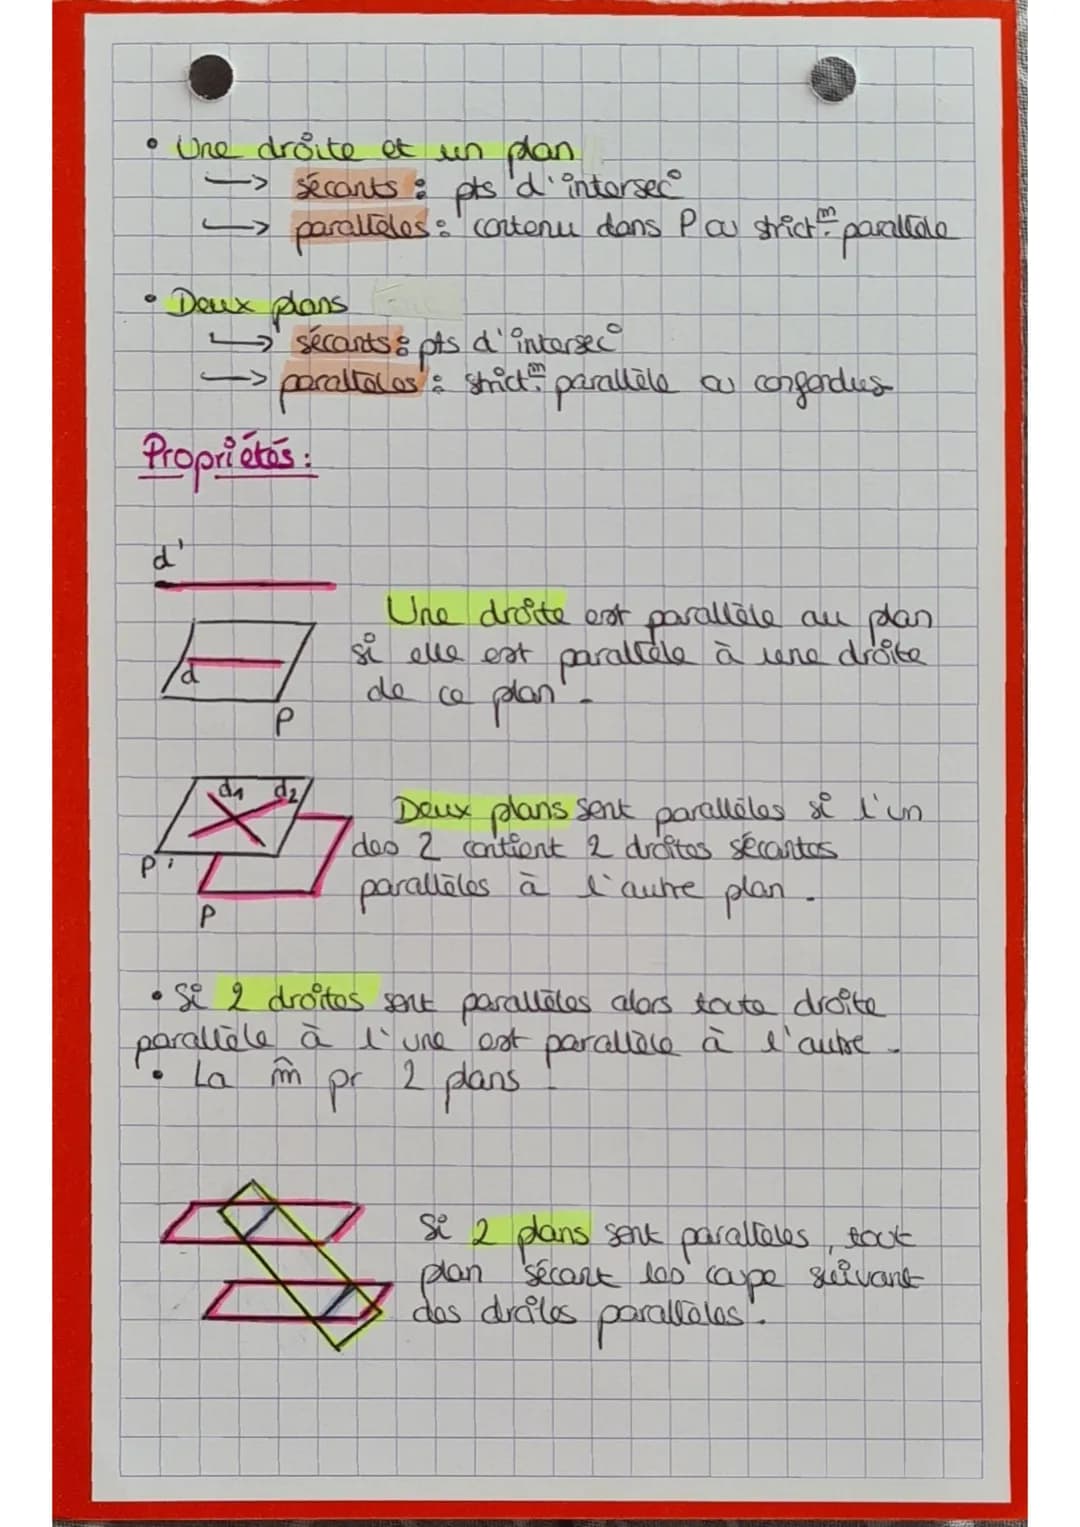 • Une droite et un plan
→ sécants : pts d'intersec°
→ parallèles : contenu dans P ou strict^m parallèle
• Deux plans
→ sécants : pts d'intersec°
→ parallèles : strict^m parallèle ou confondus
Propriétés :
d'
Une droite est parallèle au plan
si elle est parallèle à une droite
de ce plan.
d
P
d1 d2
Deux plans sont parallèles si l'un
des 2 contient 2 droites sécantes
parallèles à l'autre plan.
P'
P
• Si 2 droites sont parallèles alors toute droite
parallèle à l'une est parallèle à l'autre.
• La m̂ pr 2 plans !
Si 2 plans sont parallèles, tout
plan sécant les coupe suivant
des droites parallèles.